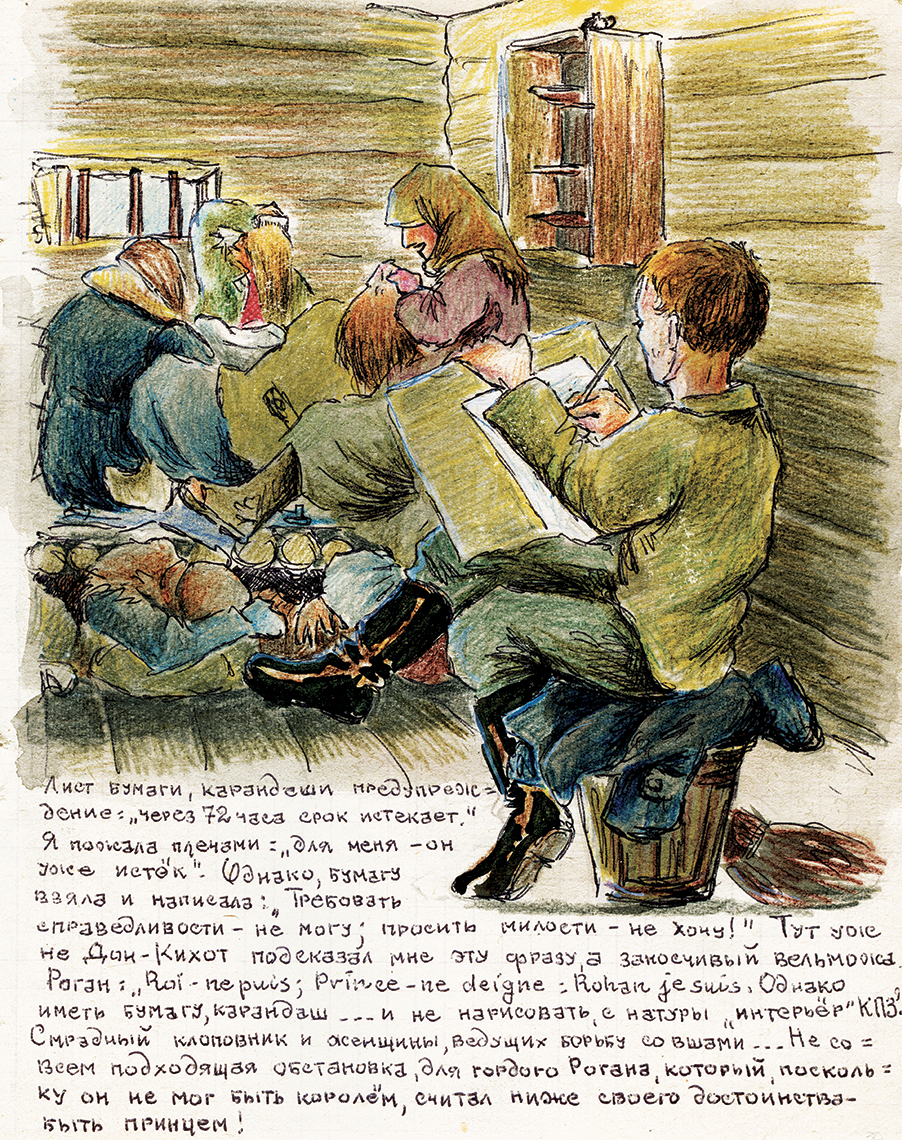 Лист бумаги, карандаши предупреж=
дение: „через 72 часа срок истекает."
Я пожала плечами: „для меня – он
уже истёк". Однако, бумагу
взяла и написала: „Требовать
справедливости – не могу; просить милости – не хочу!" Тут уже
не Дон-Кихот подсказал мне эту фразу, а заносчивый вельможа
Роган: „Roi – ne puis; Prince – ne deigne: Rohan je suis. Однако
иметь бумагу, карандаш .... и не нарисовать, с натуры „интерьер" КПЗ?
Смрадный клоповник и женщины, ведущих борьбу со вшами ... Не со=
всем подходящая обстановка, для гордого Рогана, который, посколь=
ку он не мог быть королём, считал ниже своего достоинства–
быть принцем!